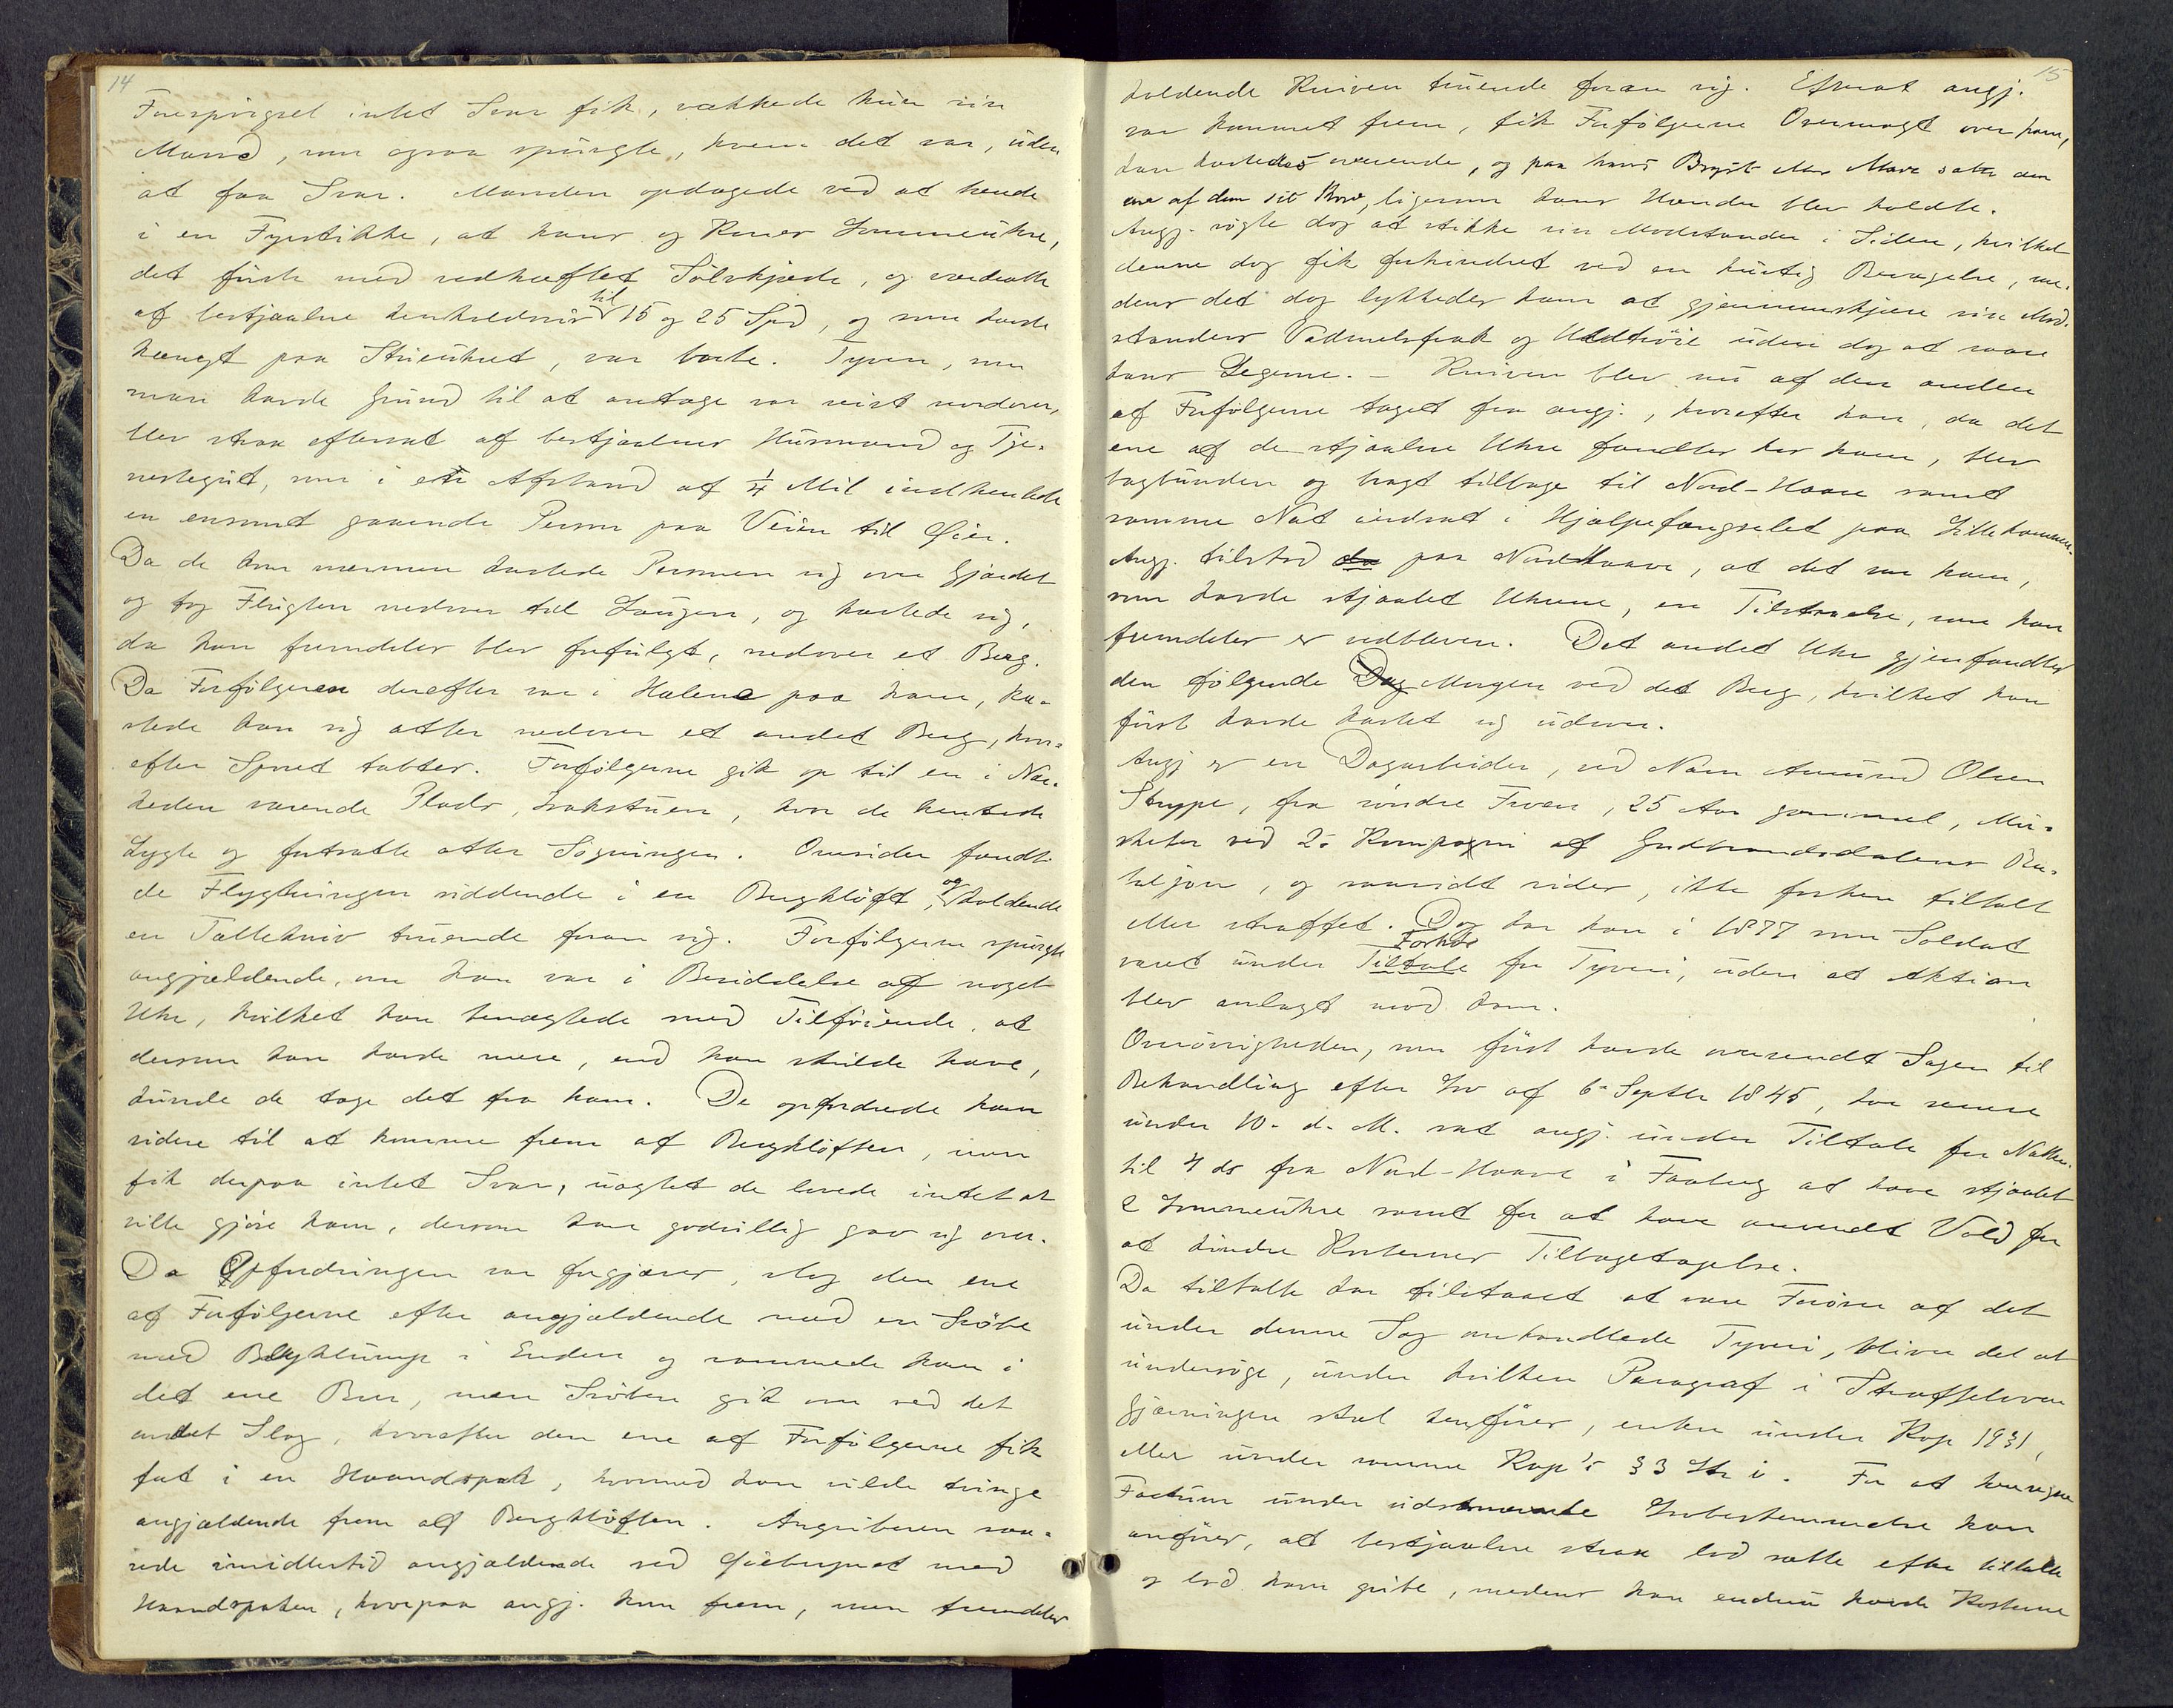 14
Forespørgsel intet Svar fik, vækkede hun sin
Mand, som ogsaa spurgte, hvem det var, uden
at faa Svar. Manden opdagede ved at tænde
i en Fyrstikke, at hans og Konens Lommeuhre,
det første med vedhæftet Sølvkjæde, og værdsatte
af bestjaalne henholdsvis til 15 og 25 Spd, og som havde
hængt paa Stueuhret, var borte. Tyven, som
man havde Grund til at antage var reist nordover,
blev strax eftersat af bestjaalnes Husmand og Tje-
nestegut, som i en Afstand af ¼ Mil indhentede
en ensomt gaaende Person paa Veien til Øier.
Da de kom nærmere kastede Personen sig over Gjærdet
og tog Flugten nedover til Laugen, og kastede sig,
da han fremdeles blev forfulgt, nedover et Berg.
Da Forfølgeren derefter var i Halene paa ham, ka-
stede han sig atter nedover et andet Berg, hvor-
efter Sporet tabtes. Forfølgerne gik op til en i Nær-
heden værende Plads, Brakstuen, hvor de hentede
Lygte og fortsatte atter Søgningen. Omsider fandt
de Flygtningen siddende i en Bergkløft, og holdende
en Tollekniv truende foran sig. Forfølgerne spurgte
angjældende, om han var i Besiddelse af noget
Uhr, hvilket han benægtede med Tilføiende, at
dersom han havde mere, end han skulde have,
kunde de tage det fra ham. De opfordrede ham
videre til at komme frem af Bergkløften, men
fik derpaa intet Svar, uagtet de lovede intet at
ville gjøre ham, dersom han godvillig gav sig over.
Da Opfordringen var forgjæves, slog den ene
af Forfølgerne efter angjældende med en Svøbe
med Blyklump i Enden og rammede ham i
det ene Ben, men Svøben gik om ved det
andet Slag, hvorefter den ene af Forfølgerne fik
fat i en Haandspak, hvormed han vilde tvinge
angjældende frem af Bergkløften. Angriberen saa-
rede imidlertid angjældende ved Øiebrynet med
Haandspaken, hvorpaa angj. kom frem, men fremdeles
15
holdende Kniven truende foran sig. Efterat angj.
var kommet frem, fik Forfølgerne Overmagt over ham,
han kastedes overende, og paa hans Bryst eller Mave satte den
ene af dem sit Knæ, ligesom hans Hænder blev holdte.
Angj. søgte dog at stikke sin Modstander i Siden, hvilket
denne dog fik forhindret ved en hurtig Bevægelse, me-
dens det dog lykkedes ham at gjennemskjære sin Mod-
standers Vadmelsfrak og Uldtrøie uden dog at saare
hans Legeme. – Kniven blev nu af den anden
af Forfølgerne taget fra angj., hvorefter han, da det
ene af de stjaalne Uhre fandtes hos ham, blev
bagbunden og bragt tilbage til Nord-Haave samt
samme Nat indsat i Hjælpefængselet paa Lillehammer.
Angj. tilstod da paa Nordhaave, at det var ham,
som havde stjaalet Uhrene, en Tilstaaelse, som han
fremdeles er vedbleven. Det andet Uhr gjenfandtes
den følgende Dag Morgen ved det Berg, hvilket han
først havde kastet sig udover.
Angj er en Dagarbeider, ved Navn Amund Olsen
Stryppe, fra søndre Fron, 25 Aar gammel, Mu-
sketer ved 2. Kompagni af Gudbrandsdalens Ba-
taljon, og saavidt vides, ikke forhen tiltalt
eller straffet. Dog har han i 1877 som Soldat
været under Tiltale Forhør for Tyveri, uden at Aktion
blev anlagt mod ham.
Overøvrigheden, som først havde oversendt Sagen til
Behandling efter Lov af 6 Septbr 1845, har senere
under 10. d. M. sat angj. under Tiltale for Natten
til 4 ds fra Nord-Haave i Faaberg at have stjaalet
2 Lommeuhre samt for at have anvendt Vold for
at hindre Kosternes Tilbagetagelse.
Da tiltalte har tilstaaet at være Forøver af det
under denne Sag omhandlede Tyveri, bliver det at
undersøge, under hvilken Paragraf i Straffeloven
Gjerningen skal henføres, enten under Kap 19 § 1,
eller under samme Kap's § 3 Ltr i. For at henregne
Factum under sidstnævnte Lovbestemmelse kan
anføres, at bestjaalne strax lod sætte efter tiltalte
og lod ham gribe, medens han endnu havde Kosterne